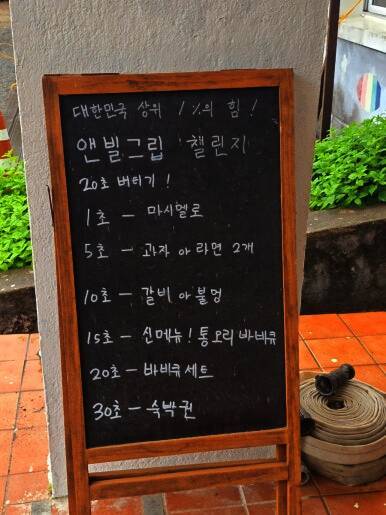 대한민국 상위 1%의 힘!
앤빌그립 챌린지
20초 버티기!
1초 - 마시멜로
5초 - 과자 or 라면 2개
10초 - 갈비 or 불멍
15초 - 신메뉴! 통오리 바비큐
20초 - 바비큐세트
30초 - 숙박권